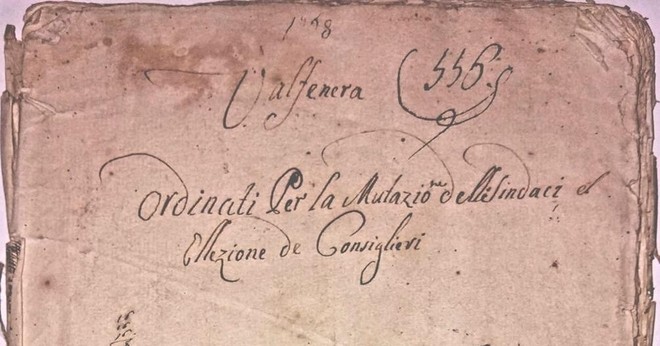 Valfenera 556:
Ordinati Per la Mutazio.ne delli Sindaci et
Ellezione de Consiglieri